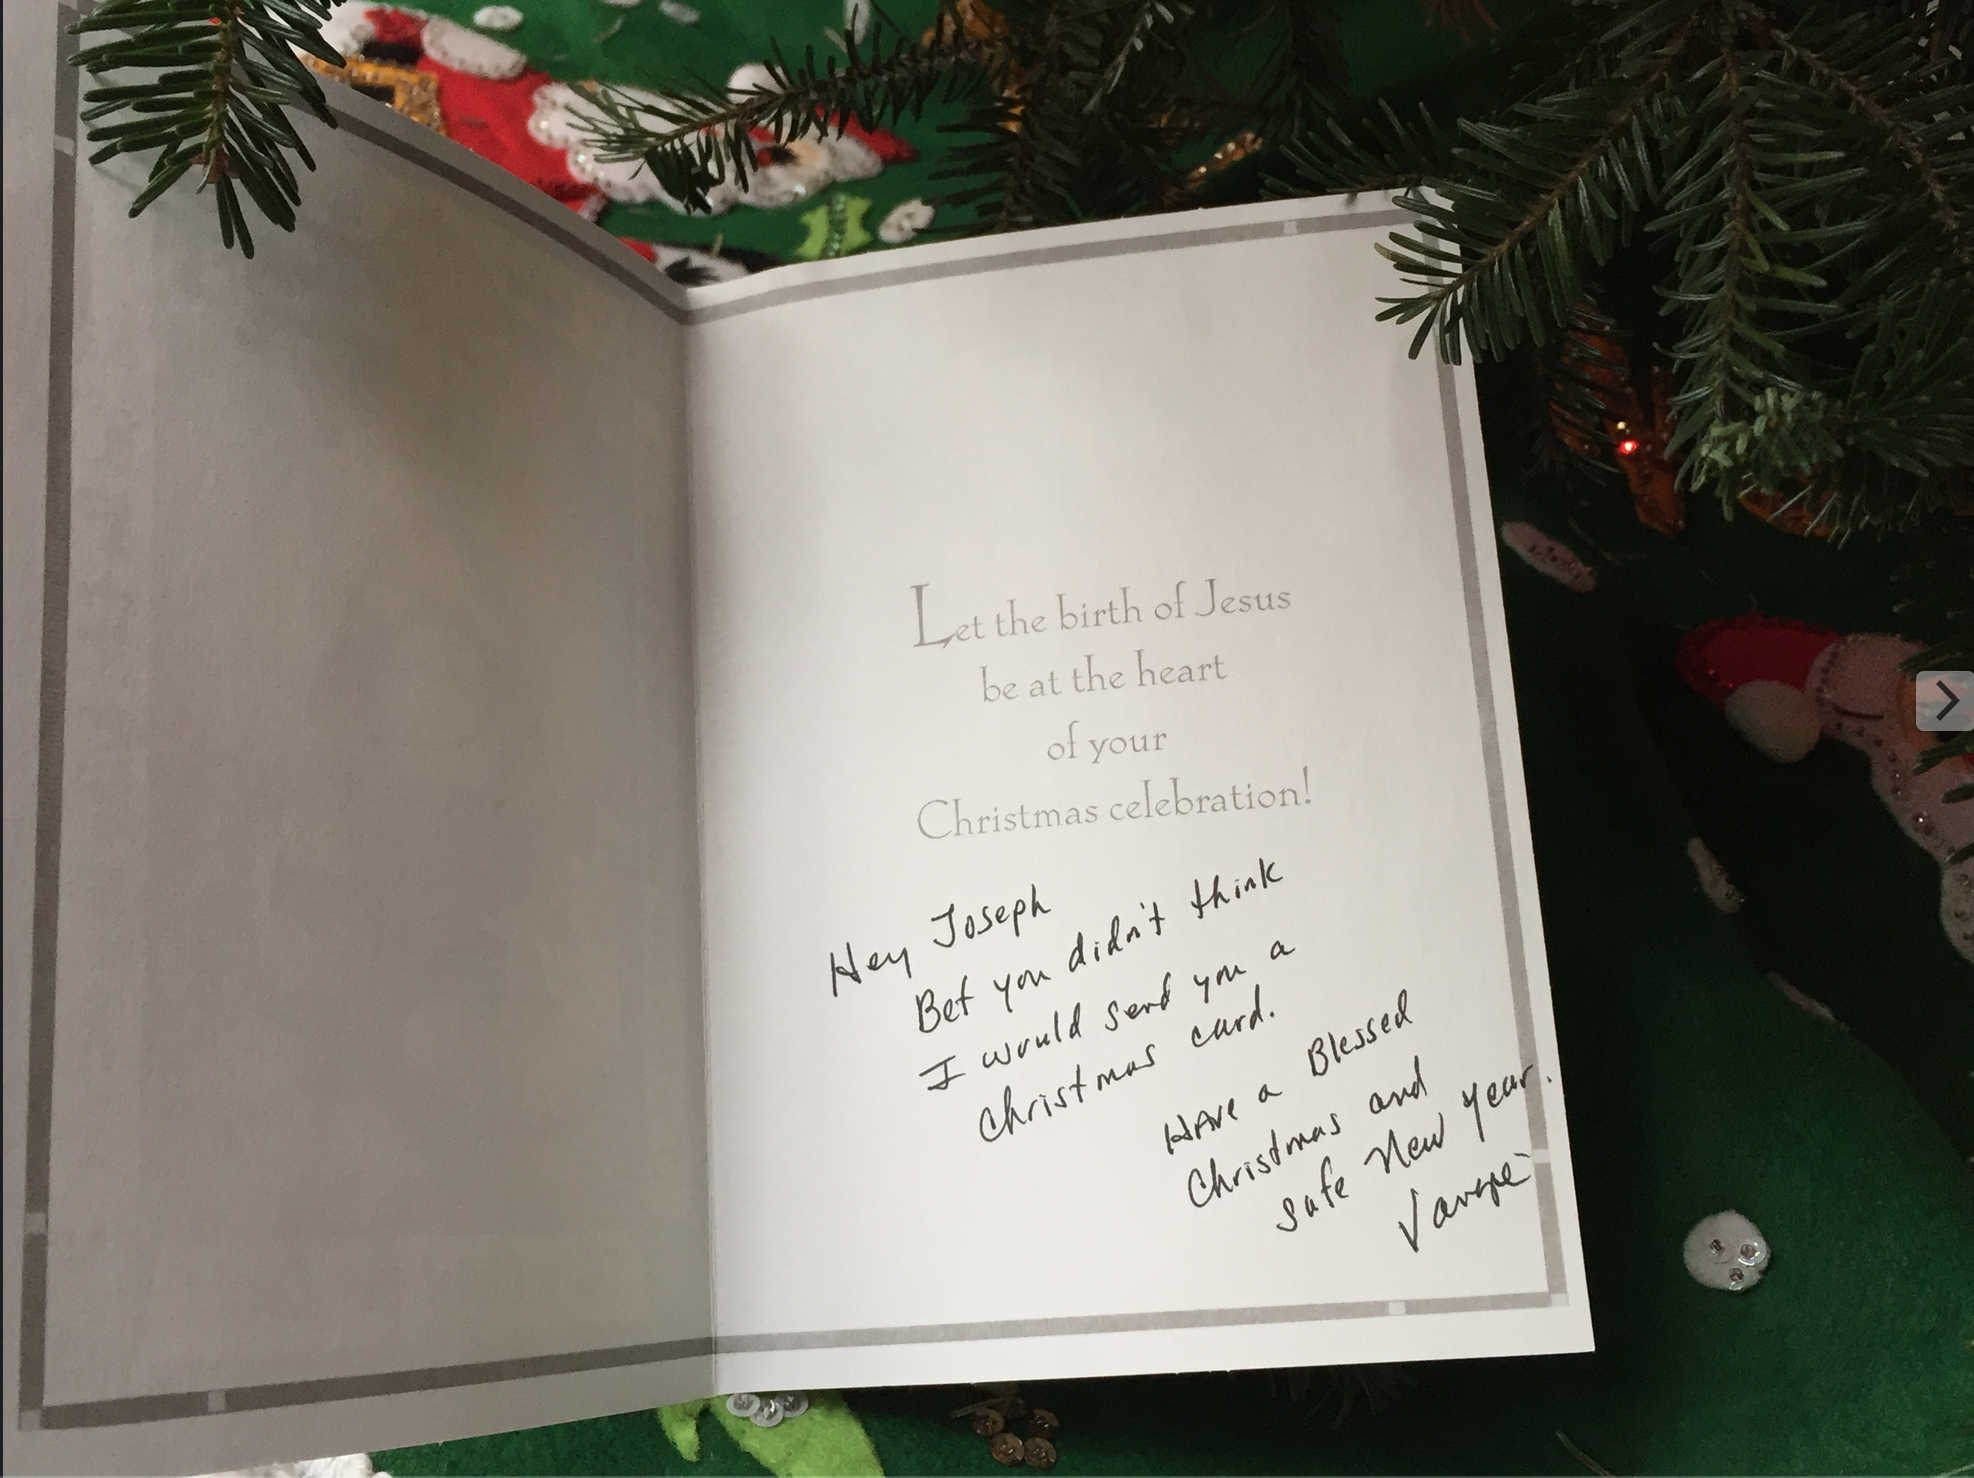 Let the birth of Jesus
be at the heart
of your
Christmas celebration!
Hey Joseph
Bet you didn't think
I would send you a
Christmas card.
Have a Blessed
Christmas and
safe New Year.